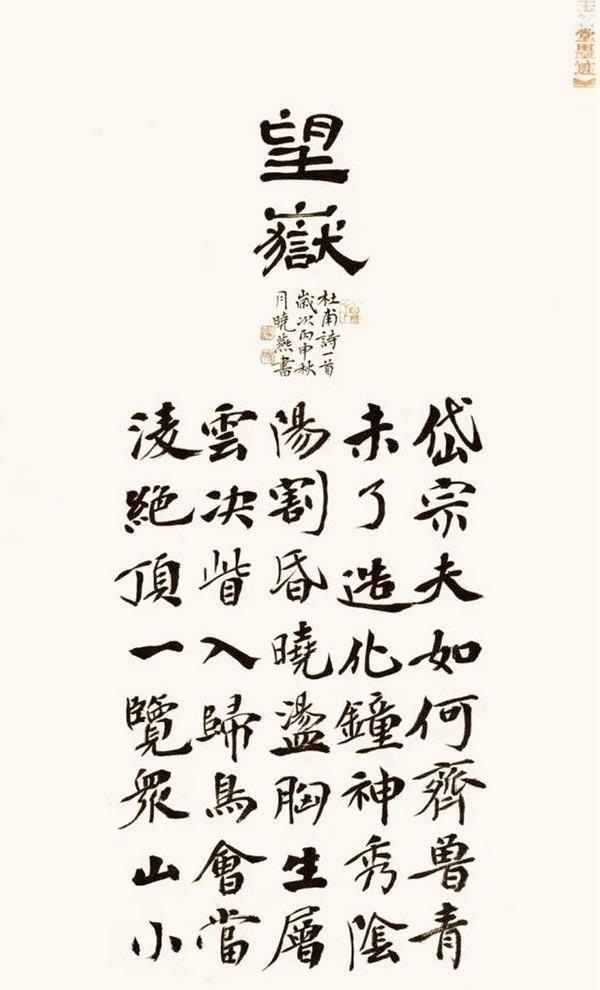 堂墨迹》
望嶽
杜甫詩一首
歲次丙申秋
月曉燕書
岱宗夫如何齊魯青
未了造化鐘神秀陰
陽割昏曉盪胸生層
雲决眥入歸鳥會當
淩絶頂一覽眾山小